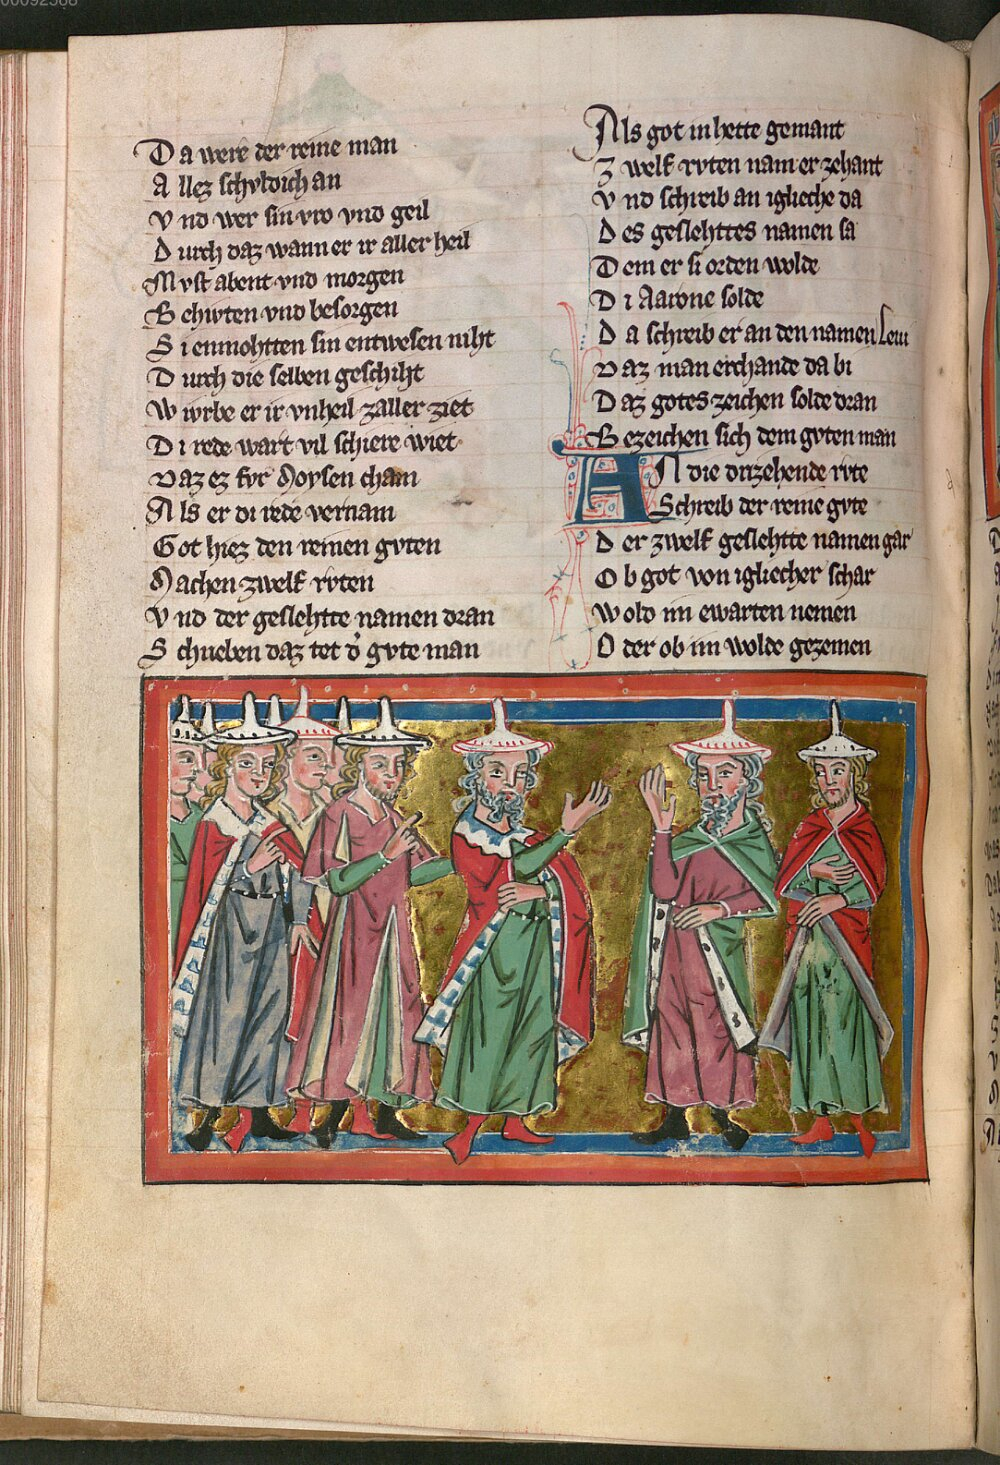 Da were der reine man
Allez schvldich an
Vnd wer sin vro vnd geil
Durch daz wann er ir aller heil
Mvst abent vnd morgen
Behvten vnd besorgen
Si enmohtten sin entwesen niht
Durch die selben geschiht
Wvrbe er ir vnheil zaller ziet
Di rede wart vil schiere wiet
Vaz ez fvr Moysen cham
Als er di rede vernam
Got hiez den reinen gvten
Machen zwelf rvten
Vnd der geslehtte namen dran
Schrieben daz tet d' gvte man
Als got in hette gemant
Zwelf rvten nam er zehant
Vnd schreib an igliche da
Des geslehttes namen sa
Dem er si orden wolde
Di Aarone solde
Da schreib er an den namen Leui
Vaz man erchande da bi
Daz gotes zeichen solde dran
Bezeichen sich dem gvten man
An die drizehende rvte
Schreib der reine gvte
Der zwelf geslehtte namen gar
Ob got von igliecher schar
Wold im ewarten nemen
Oder ob im wolde gezemen